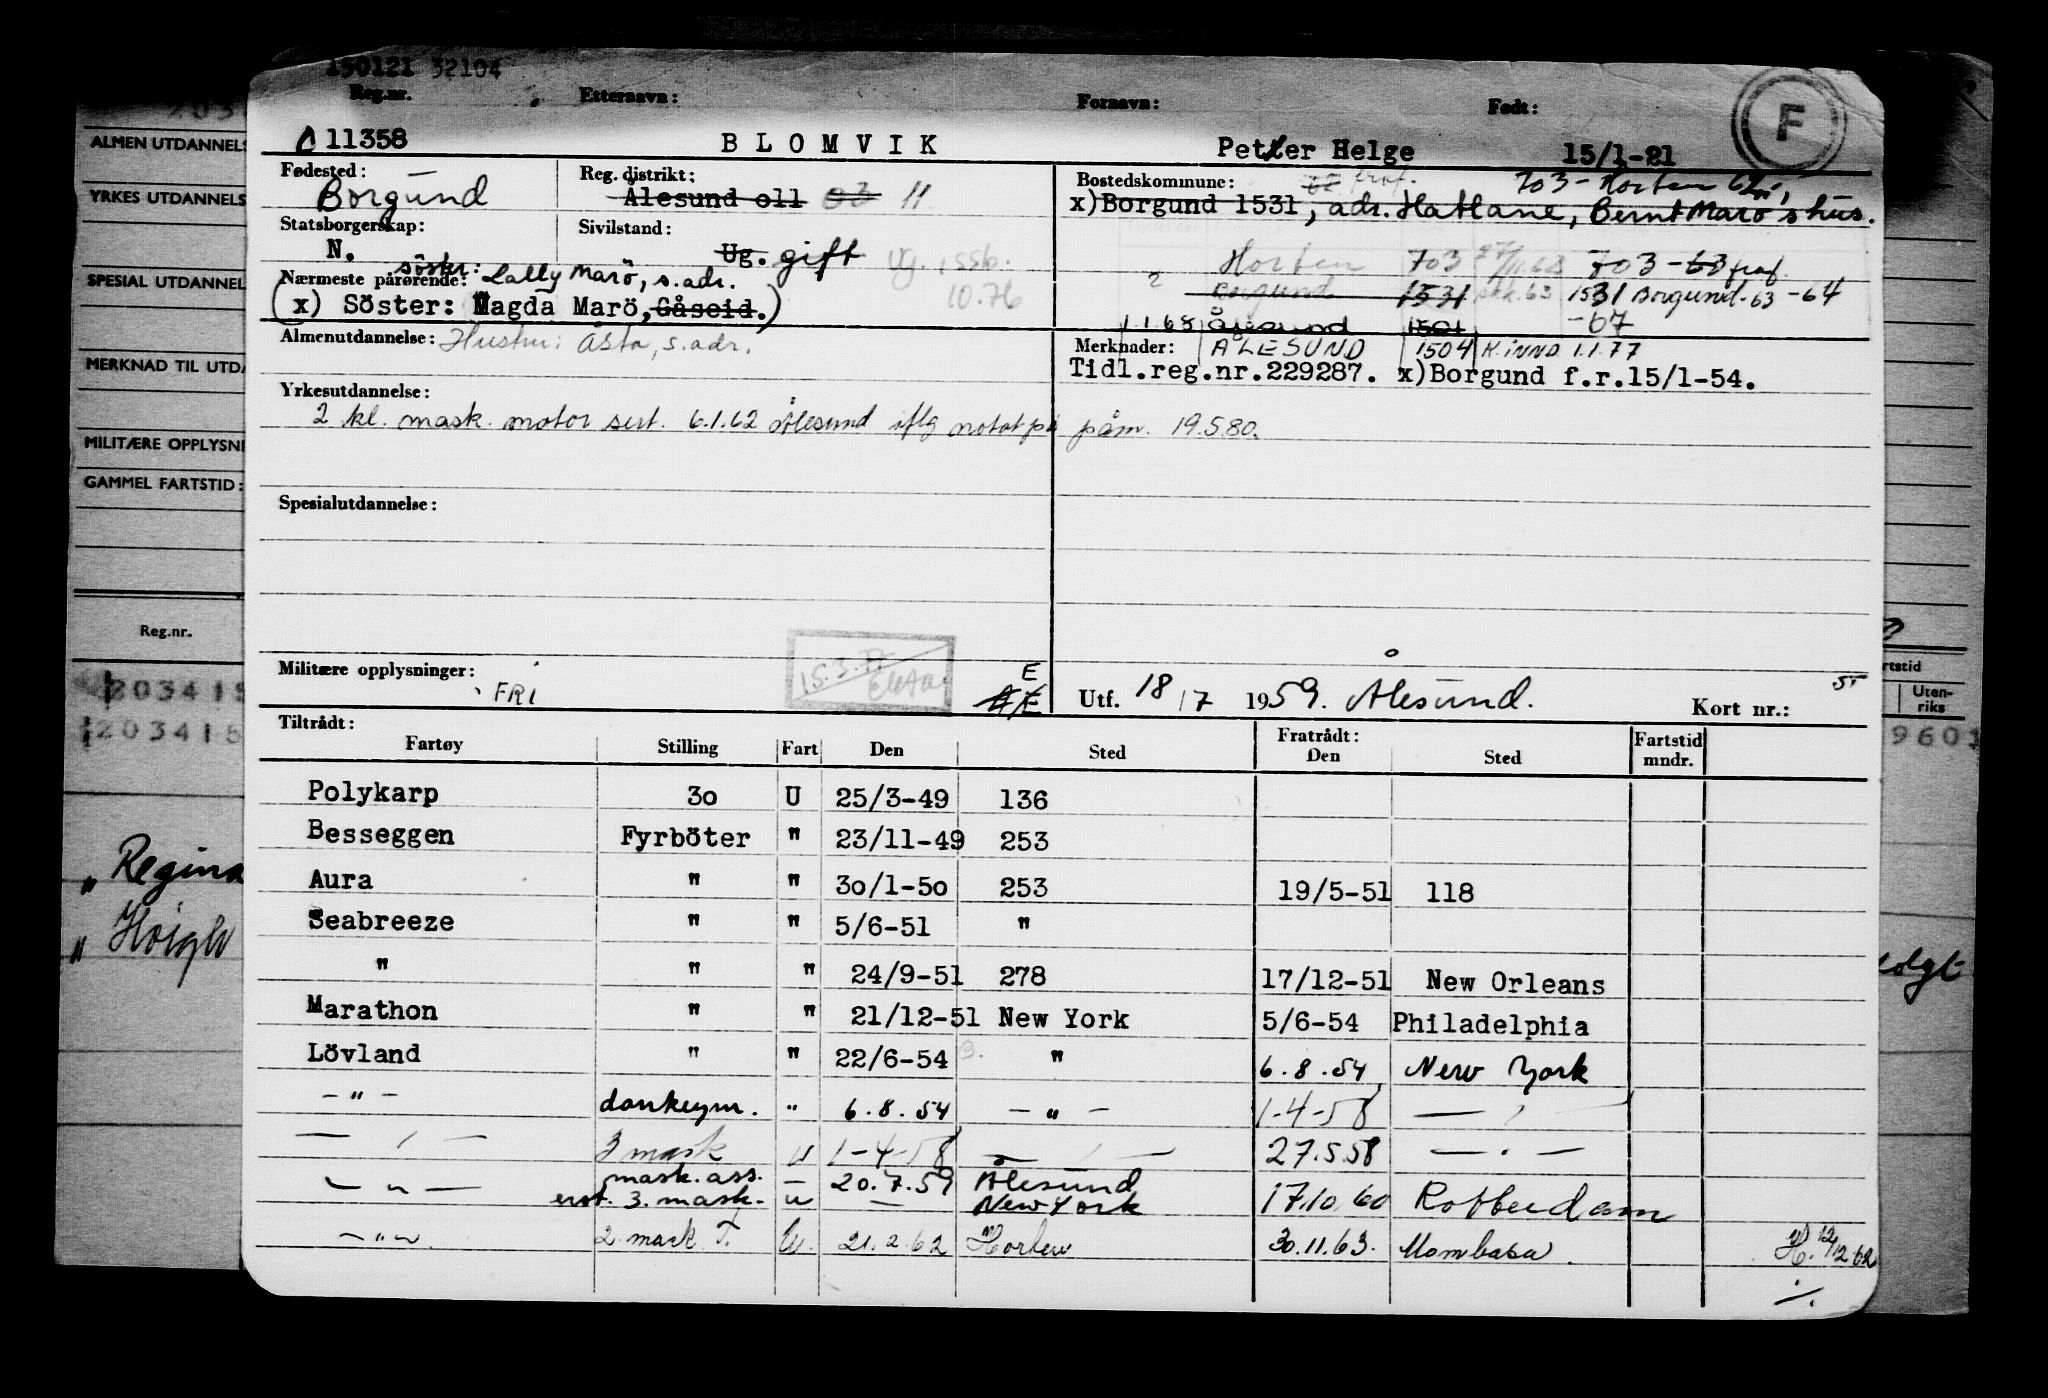 150121 32104
Reg.nr. Etternavn: Fornavn: Født:
11358 BLOMVIK Petter Helge 15/1-21
F
Fødested: Borgund
Reg. distrikt: Ålesund o11 03 11
Bostedskommune: 703 - Horten 62
x)Borgund 1531, adr. Hatlane, Bernt Marö's hus.
Statsborgerskap: N.
Sivilstand: Ug. gift ug. 10.76
Horten 703 703 - 63 fraf.
Borgund 1531 1531 Borgund - 63 - 64
- 67
1.1.68 Ålesund 1501
Nærmeste pårørende: söster: Lally Marö, s. adr.
(x) Söster: Magda Marö, Gåseid.)
Almenutdannelse: Hustru: Åsta, s. adr.
Merknader: ÅLESUND 1504 K. INND 1.1.77
Tidl.reg.nr.229287. x)Borgund f.r.15/1-54.
Yrkesutdannelse:
2 kl. mask. motor sert. 6.1.62 Ålesund iflg notat på påm. 19.5.80.
Spesialutdannelse:
Militære opplysninger: FRI
E
Utf. 18/7 1959. Ålesund. Kort nr.:
Tiltrådt: Fratrådt:
Fartøy Stilling Fart Den Sted Den Sted Fartstid mndr.
Polykarp 3o U 25/3-49 136
Besseggen Fyrböter " 23/11-49 253
Aura " " 3o/1-5o 253 19/5-51 118
Seabreeze " " 5/6-51 "
" " " 24/9-51 278 17/12-51 New Orleans
Marathon " " 21/12-51 New York 5/6-54 Philadelphia
Lövland " " 22/6-54 " 6.8.54 New York
- " - donkeym. " 6.8.54 - " - 1-4-58 - " -
- " - 3 mask u 1-4-58 - " - 27.5.58 - " -
- " - mask. ass. - 20.7.59 Ålesund
erst. 3. mask. u - New York 17.10.60 Rotterdam
- " - 2 mask T. U. 21.2.62 Horten 30.11.63. Mombasa. H. 12/12.62
ALMEN UTDANNELS
YRKES UTDANNELS
SPESIAL UTDANNEL
MERKNAD TIL UTDA
MILITÆRE OPPLYSNI
GAMMEL FARTSTID:
Reg.nr.
203415
203415
" Regina
"
rtstid
Uten-
riks
9601